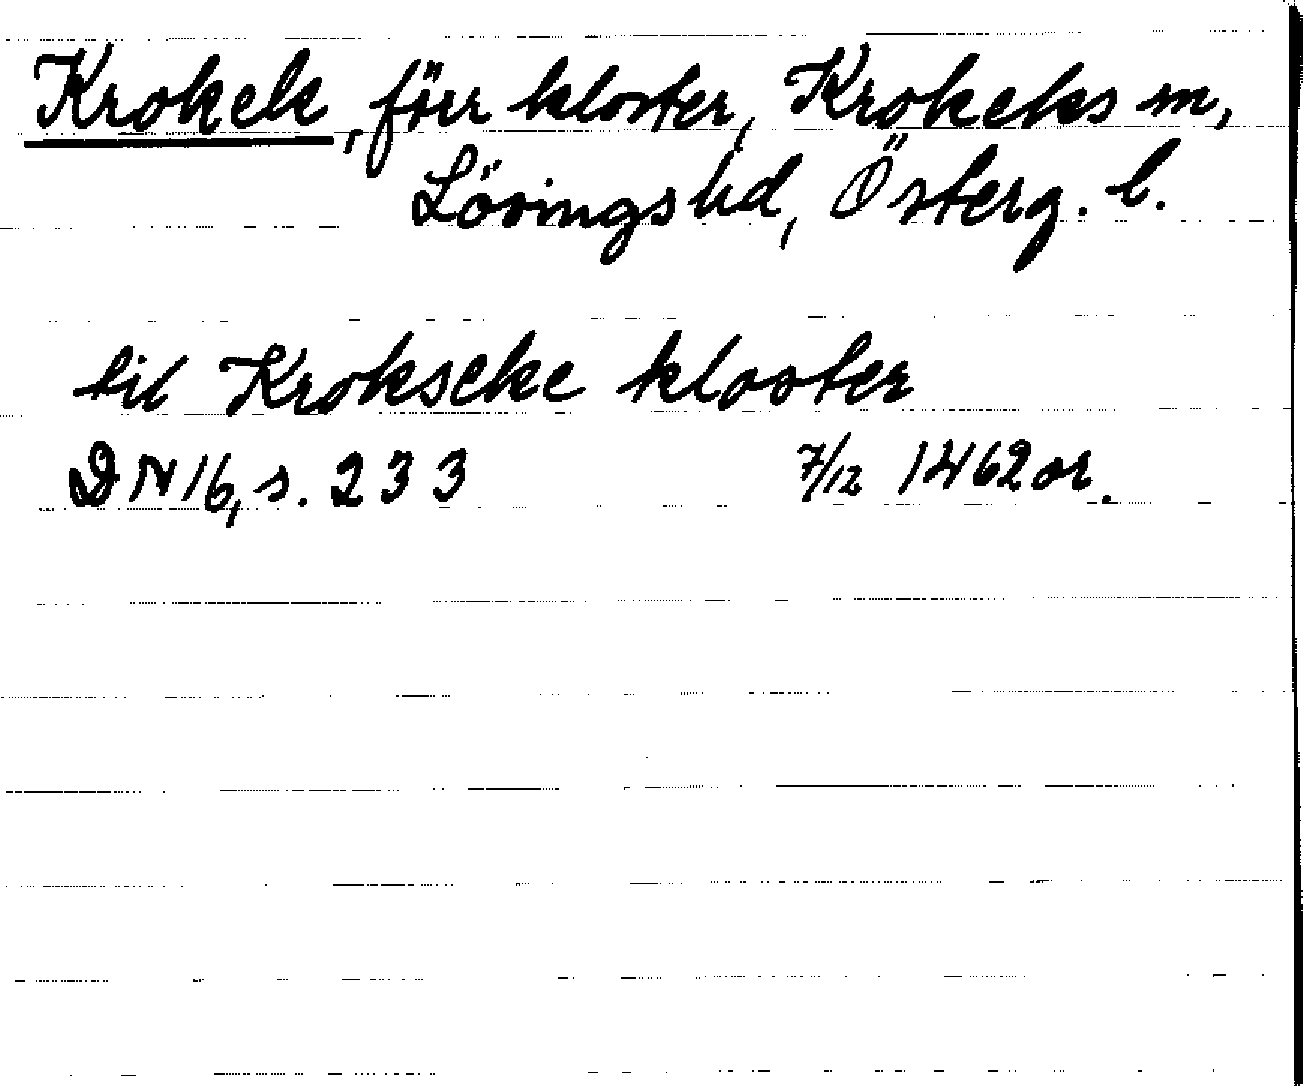 Krokek, förr kloster, Krokeks sn,
Lösings hd, Österg. l.
til Krokseke kloster
DN 16, s. 233 7/12 1462 or.